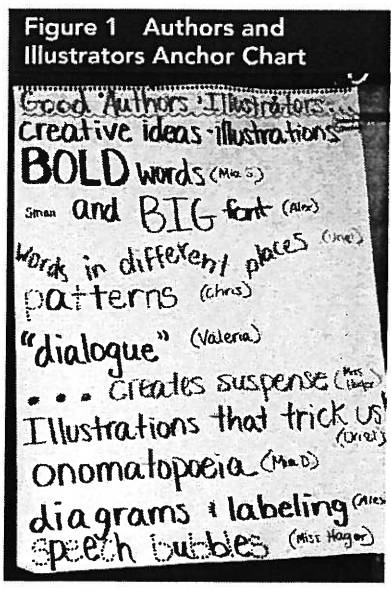 Figure 1 Authors and
Illustrators Anchor Chart
Good Authors & Illustrators...
creative ideas + illustrations
BOLD words (Mia S.)
small and BIG font (Alex)
words in different places (Uriel)
patterns (Chris)
"dialogue" (Valeria)
... creates suspense (Miss
Illustrations that trick us
(Uriel)
onomatopoeia (Mia D)
diagrams & labeling (Alex
speech bubbles (Miss Hager)